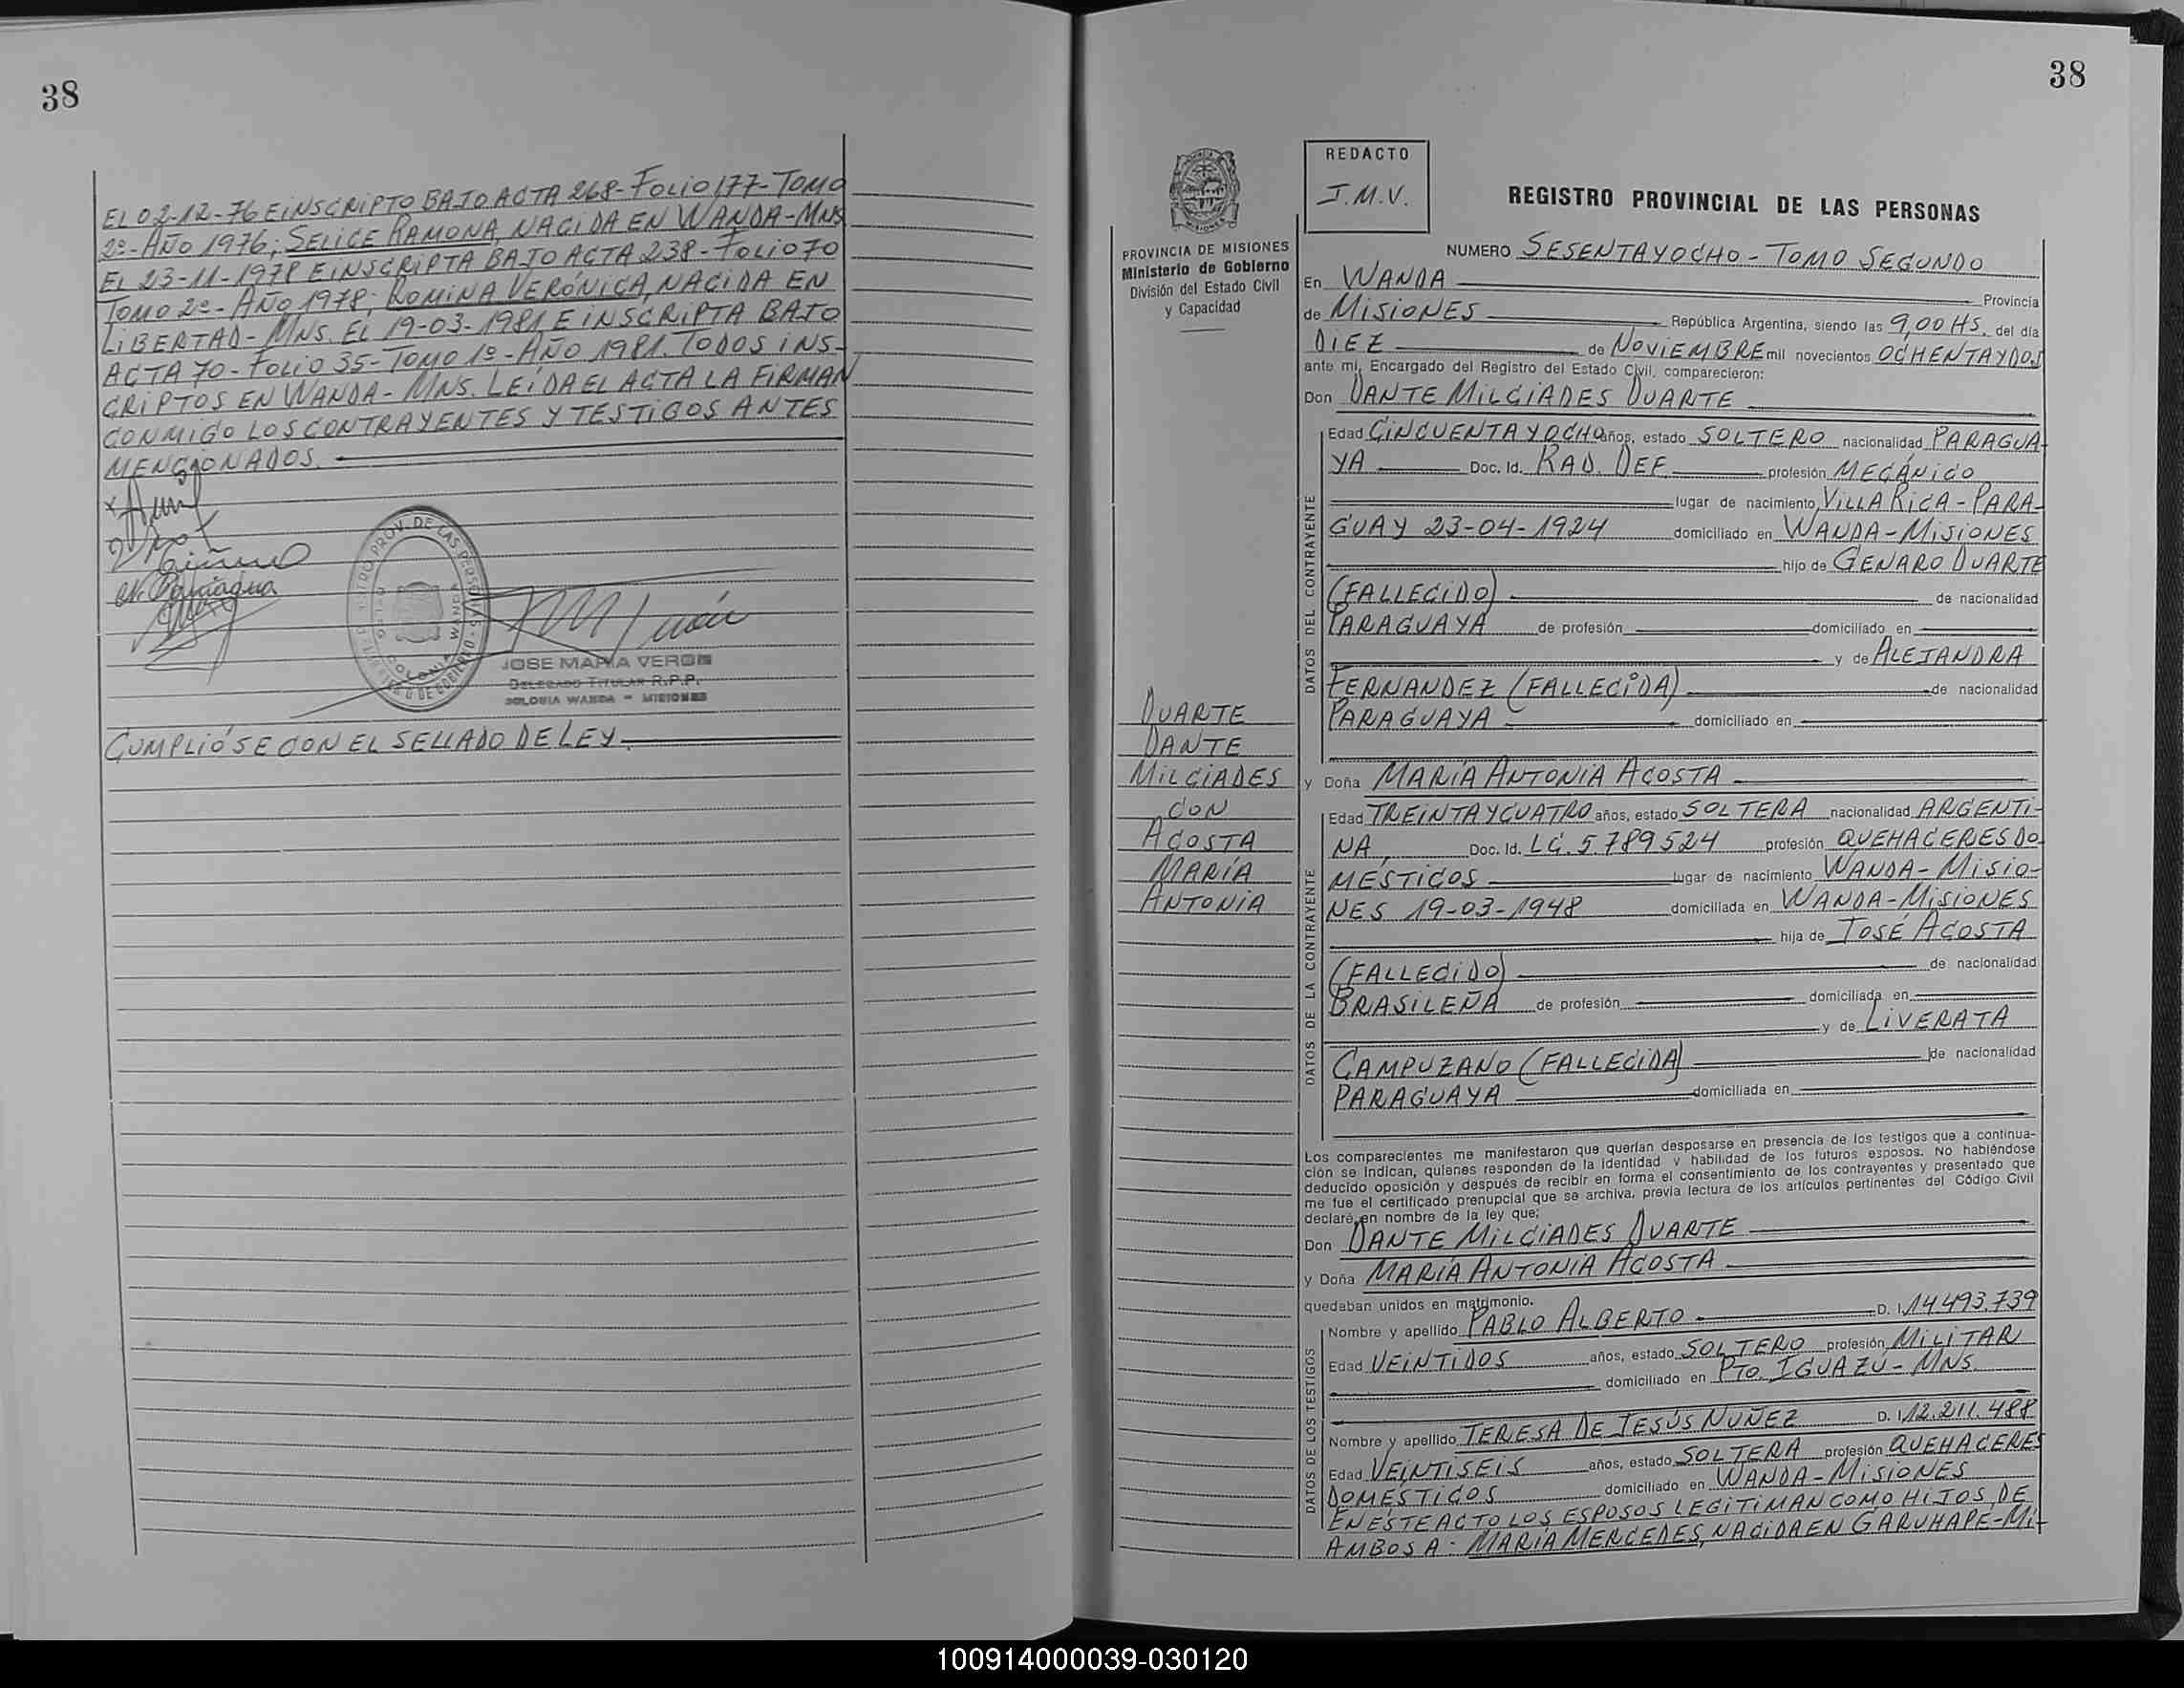 38
EL 02-12-76 E iNSCRiPTO BAJO ACTA 268- FOLiO 177- TOMO
2º- AÑO 1976; SELiCE RAMONA, NACiDA EN WANDA-MNS
EL 23-11-1978 E iNSCRiPTA BAJO ACTA 238- FOLiO 70
TOMO 2º- AÑO 1978; ROMiNA VERÓNiCA, NACiDA EN
LiBERTAD- MNS. EL 19-03-1981 E iNSCRiPTA BAJO
ACTA 70- FOLiO 35- TOMO 1º- AÑO 1981. TODOS iNS-
CRiPTOS EN WANDA- MNS. LEÍDA EL ACTA LA FiRMAN
CONMiGO LOS CONTRAYENTES Y TESTiGOS ANTES
MENCiONADOS.
JOSE MARIA VERON
DELEGADO TITULAR R.P.P.
COLONIA WANDA - MISIONES
CUMPLiÓSE CON EL SELLADO DE LEY.
38
PROVINCIA DE MISIONES
Ministerio de Gobierno
División del Estado Civil
y Capacidad
DUARTE
DANTE
MiLCiADES
CON
ACOSTA
MARÍA
ANTONiA
REDACTO
J.M.V.
REGISTRO PROVINCIAL DE LAS PERSONAS
NUMERO SESENTA Y OCHO - TOMO SEGUNDO
En WANDA Provincia
de MiSiONES República Argentina, siendo las 9,00 HS. del día
DiEZ de NOViEMBRE mil novecientos OCHENTA Y DOS
ante mí, Encargado del Registro del Estado Civil, comparecieron:
Don DANTE MiLCiADES DUARTE
DATOS DEL CONTRAYENTE
Edad CiNCUENTA Y OCHO años, estado SOLTERO nacionalidad PARAGUA-
YA Doc. Id. RAD. DEF. profesión MECÁNiCO
lugar de nacimiento ViLLA RiCA - PARA-
GUAY 23-04-1924 domiciliado en WANDA-MiSiONES
hijo de GENARO DUARTE
(FALLECiDO) de nacionalidad
PARAGUAYA de profesión domiciliado en
y de ALEJANDRA
FERNANDEZ (FALLECiDA) de nacionalidad
PARAGUAYA domiciliado en
y Doña MARÍA ANTONiA ACOSTA
DATOS DE LA CONTRAYENTE
Edad TREiNTA Y CUATRO años, estado SOLTERA nacionalidad ARGENTi-
NA Doc. Id. LC. 5.789524 profesión QUEHACERES DO-
MÉSTiCOS lugar de nacimiento WANDA- MiSiO-
NES 19-03-1948 domiciliada en WANDA-MiSiONES
hija de JOSÉ ACOSTA
(FALLECiDO) de nacionalidad
BRASiLEÑA de profesión domiciliada en
y de LiVERATA
CAMPUZANO (FALLECiDA) de nacionalidad
PARAGUAYA domiciliada en
Los comparecientes me manifestaron que querían desposarse en presencia de los testigos que a continua-
ción se indican, quienes responden de la identidad y habilidad de los futuros esposos. No habiéndose
deducido oposición y después de recibir en forma el consentimiento de los contrayentes y presentado que
me fue el certificado prenupcial que se archiva, previa lectura de los artículos pertinentes del Código Civil
declaré en nombre de la ley que;
Don DANTE MiLCiADES DUARTE
y Doña MARÍA ANTONiA ACOSTA
quedaban unidos en matrimonio.
DATOS DE LOS TESTIGOS
Nombre y apellido PABLO ALBERTO D. I. 14.493.739
Edad VEiNTiDOS años, estado SOLTERO profesión MiLiTAR
domiciliado en PTO. IGUAZÚ- MNS.
Nombre y apellido TERESA DE JESÚS NUÑEZ D. I. 12.211.488
Edad VEiNTiSEiS años, estado SOLTERA profesión QUEHACERES
DOMÉSTiCOS domiciliado en WANDA-MiSiONES
EN ESTE ACTO LOS ESPOSOS LEGiTiMAN COMO HiJOS DE
AMBOS A: MARÍA MERCEDES, NACiDA EN GARUHAPE-Mi-
100914000039-030120